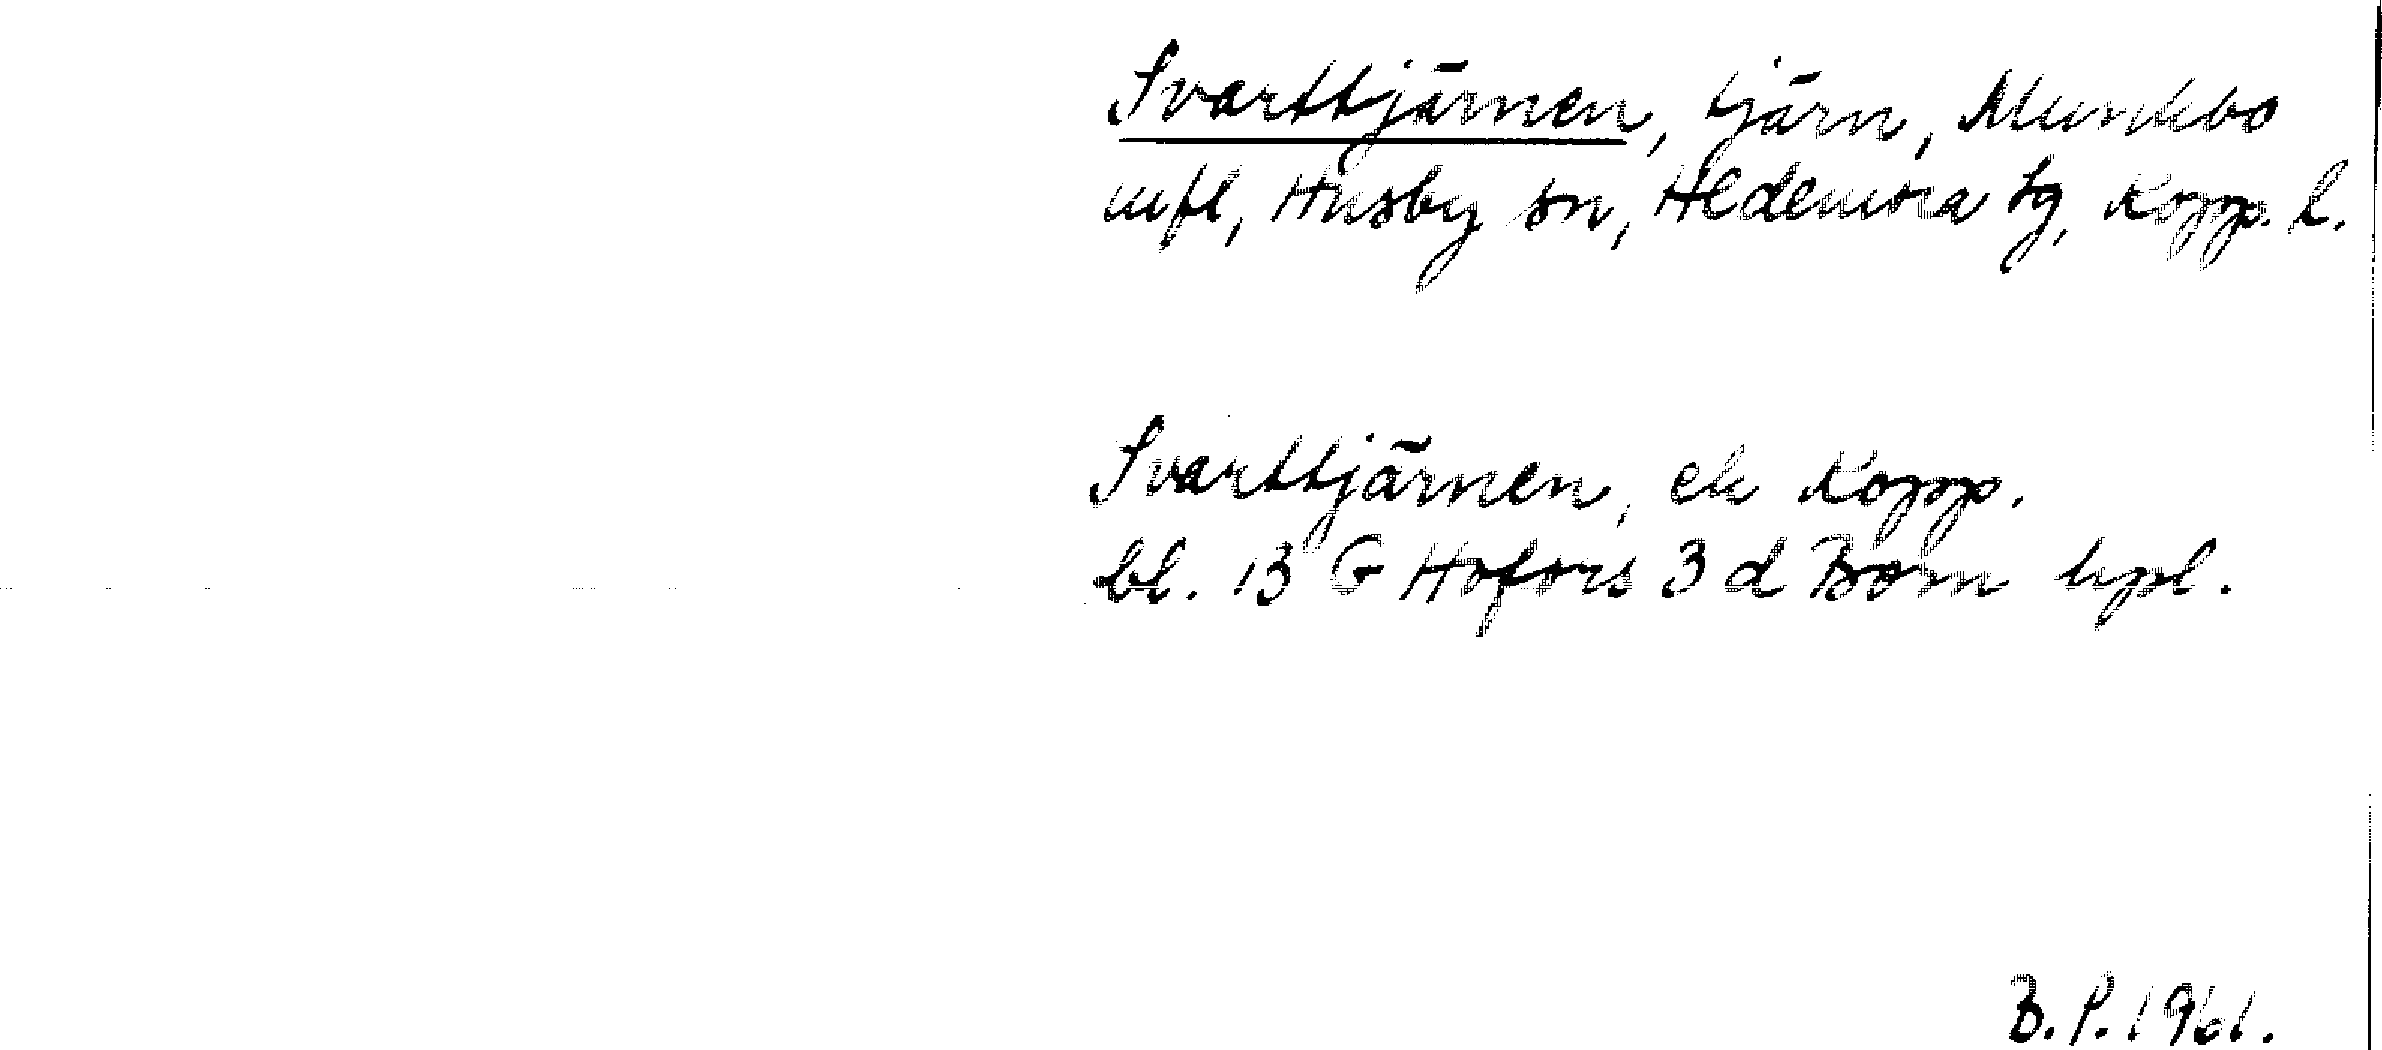 Svarttjärnen, tjärn, Munkbo
mfl, Husby sn, Hedemora tg, Kopp. l.
Svarttjärnen, ek Kopp.
bl. 13 G Hofors 3 d Bom upl.
B.P. 1961.